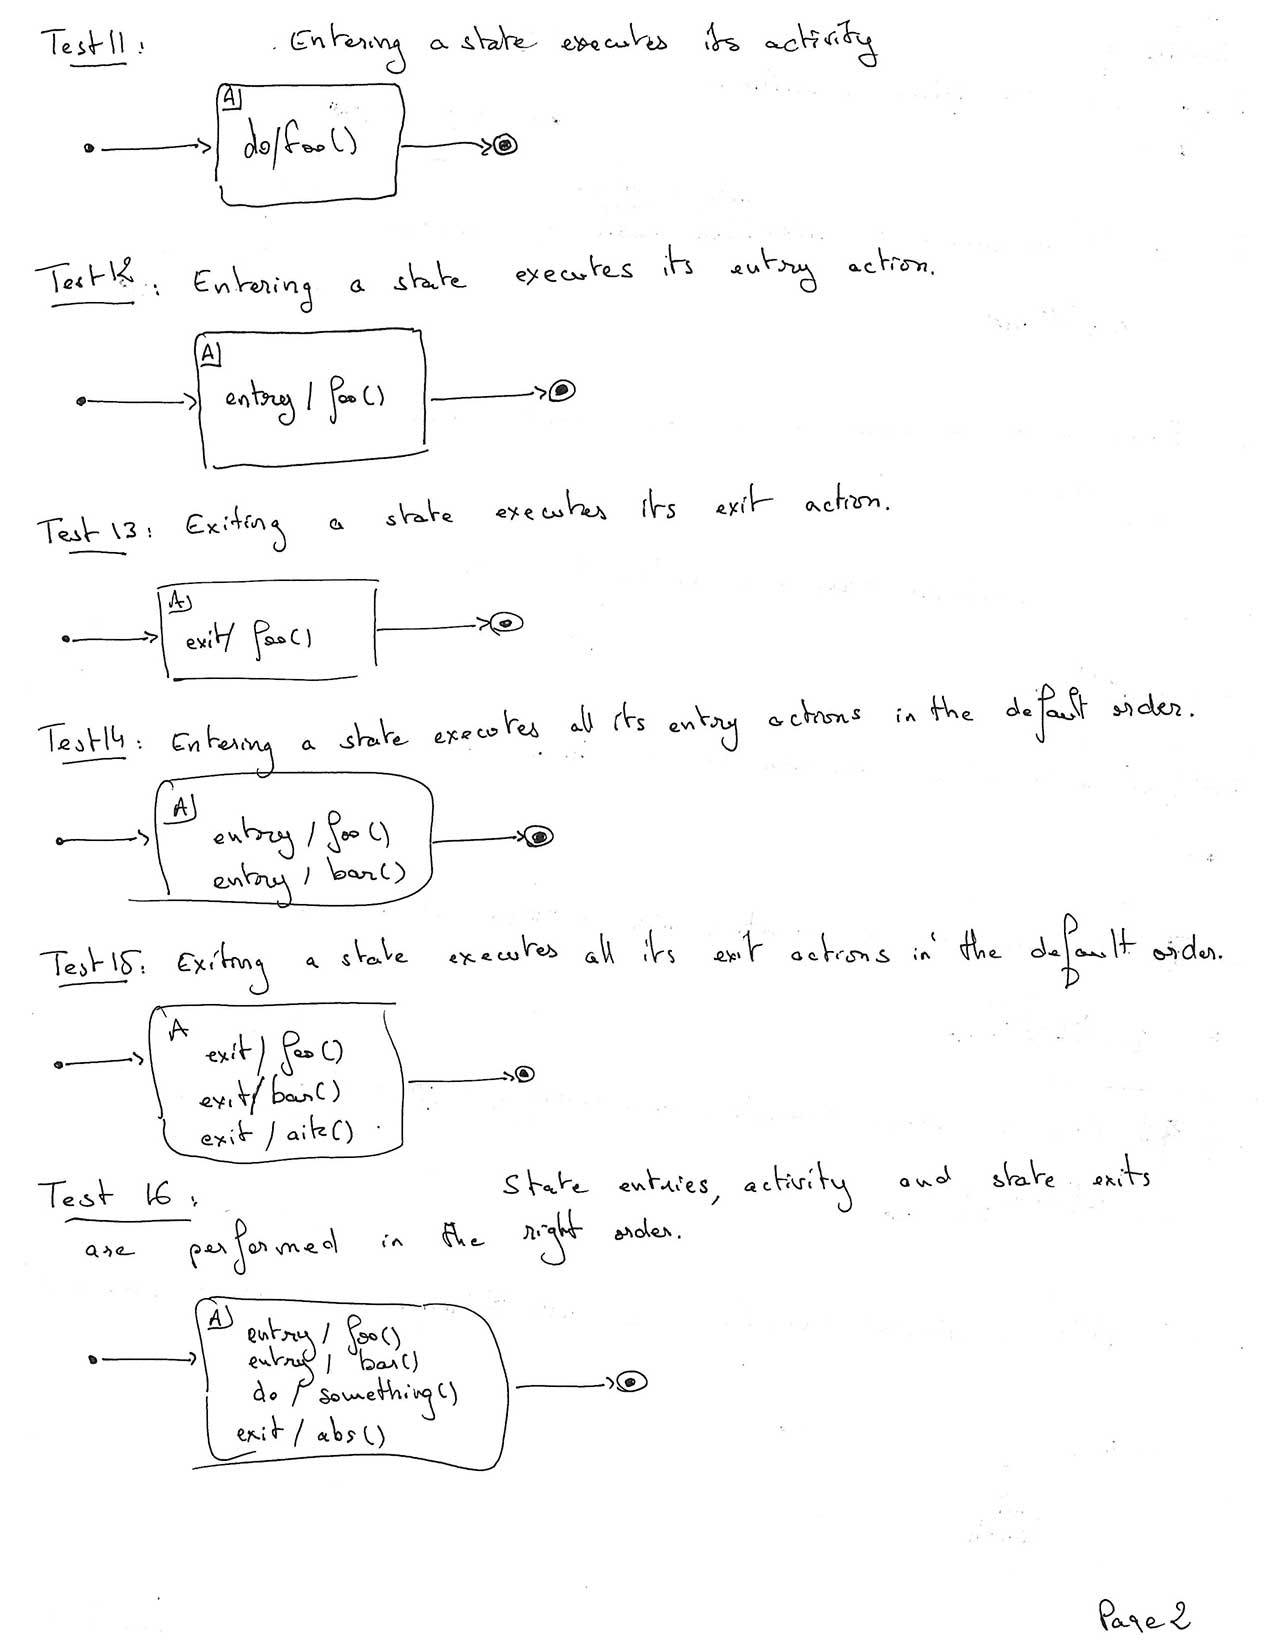 Test 11: Entering a state executes its activity
A
do/foo()
Test 12: Entering a state executes its entry action.
A
entry / foo()
Test 13: Exiting a state executes its exit action.
A
exit/ foo()
Test 14: Entering a state executes all its entry actions in the default order.
A
entry / foo()
entry / bar()
Test 15: Exiting a state executes all its exit actions in the default order.
A
exit / foo()
exit / bar()
exit / aik()
Test 16: State entries, activity and state exits
are performed in the right order.
A
entry / foo()
entry / bar()
do / something()
exit / abs()
Page 2